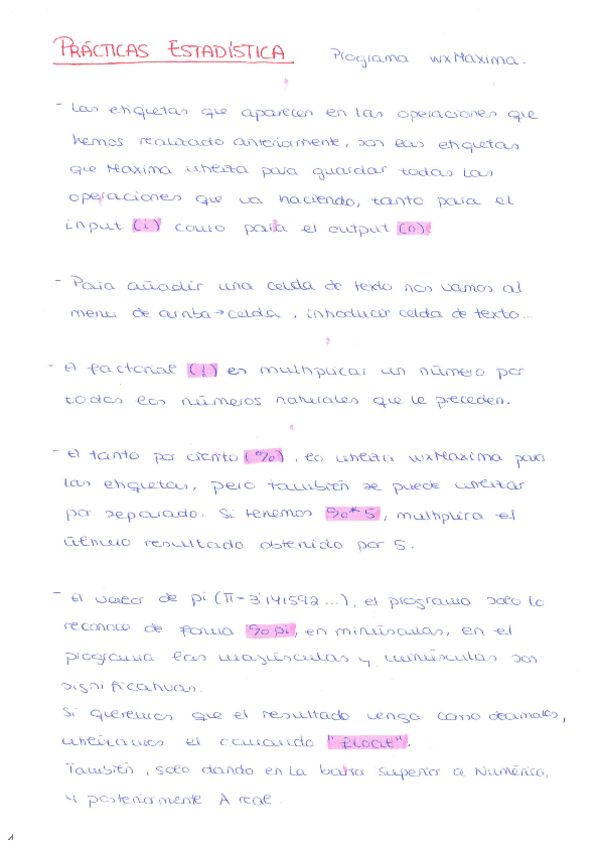 PRÁCTICAS ESTADÍSTICA. Programa wxMaxima.
- Las etiquetas que aparecen en las operaciones que
hemos realizado anteriormente, son las etiquetas
que Maxima utiliza para guardar todas las
operaciones que va haciendo, tanto para el
input (i) como para el output (o)
- Para añadir una celda de texto nos vamos al
menu de arriba → celda, introducir celda de texto...
- El factorial (!) es multiplicar un número por
todos los números naturales que le preceden.
- El tanto por ciento (%), lo utiliza wxMaxima para
las etiquetas, pero también se puede utilizar
por separado. Si tenemos %*5, multiplica el
último resultado obtenido por 5.
- El valor de pi (π=3'141592...), el programa solo lo
reconoce de forma %pi, en minúsculas, en el
programa las mayúsculas y minúsculas son
significativas.
Si queremos que el resultado venga como decimales,
utilizamos el comando "float".
También, solo dando en la barra superior a Numérico,
y posteriormente A real.
1